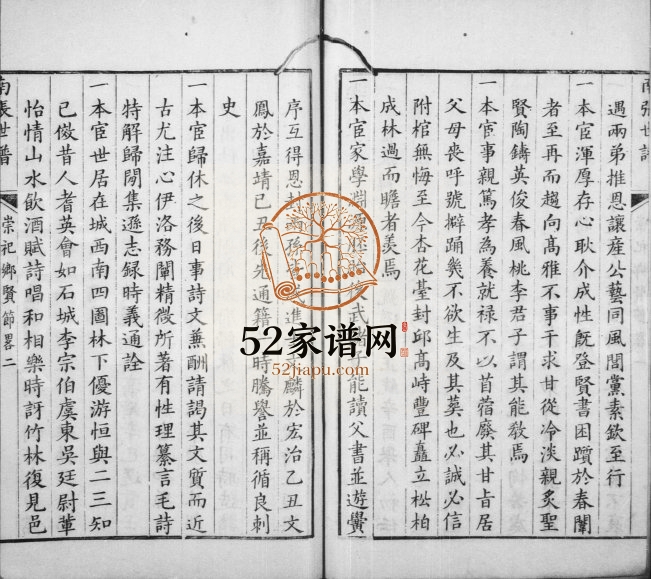 南張世譜
遇兩弟推恩讓産公藝同風閭黨素欽至行
一本宦渾厚存心耿介成性旣登賢書困躓於春闈
者至再而趨向髙雅不事干求甘從冷淡親炙聖
賢陶鑄英俊春風桃李君子謂其能敎焉
一本宦事親篤孝為養就禄不以苜蓿廢其甘旨居
父母喪呼號擗踊幾不欲生及其葬也必誠必信
附棺無悔至今杏花臺封邱髙峙豐碑矗立松柏
成林過而瞻者羡焉
一本宦家學淵 武 子能讀父書並遊黌
序互得恩 孫 進 麟於宏治乙丑文
鳳於嘉靖己丑後先通籍 時騰譽並稱循良刺
史
一本宦歸休之後日事詩文兼酬請謁其文質而近
古尤注心伊洛務闡精微所著有性理纂言毛詩
特解歸閒集遜志録時義通詮
一本宦世居在城西南四圍林下優游恒與二三知
已倣昔人耆英會如石城李宗伯虞東吳廷尉輩
怡情山水飲酒賦詩唱和相樂時訝竹林復見邑
南張世譜
崇祀鄉賢節畧二
52家谱网
52jiapu.com